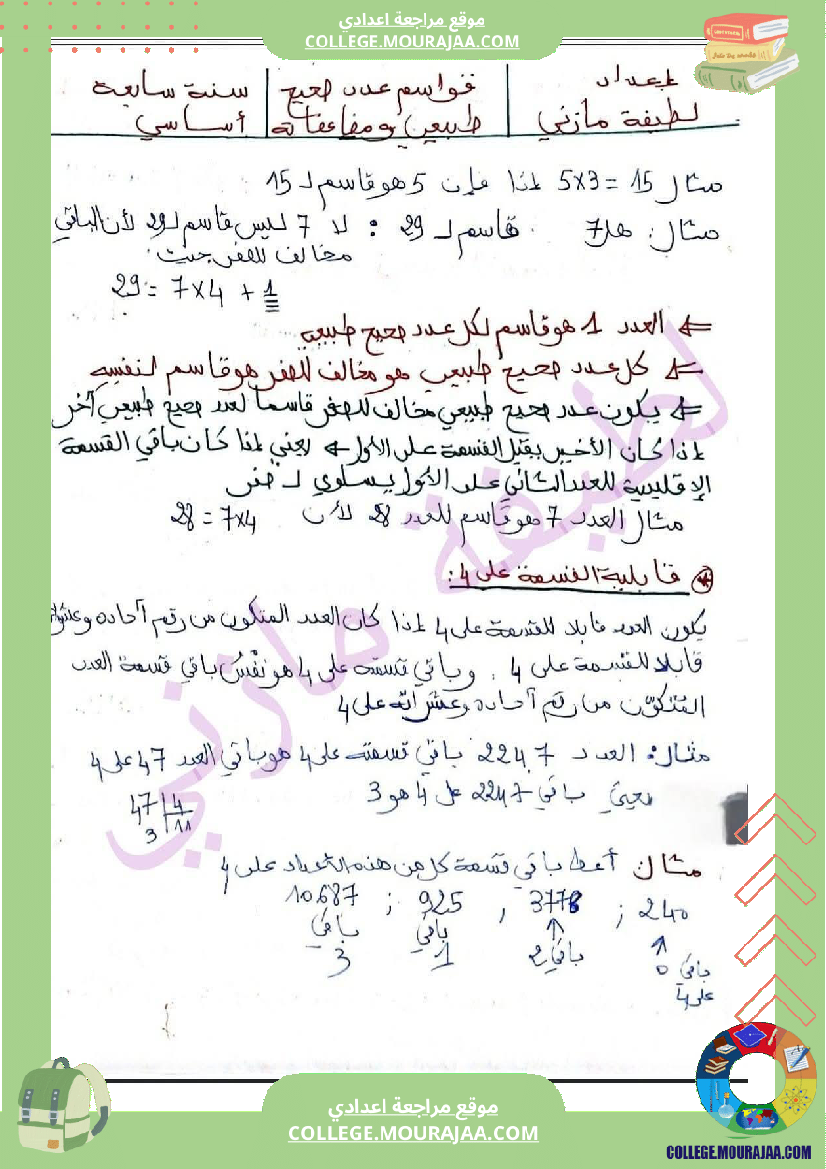 موقع مراجعة اعدادي
COLLEGE.MOURAJAA.COM
إعداد لطيفة مازني
قواسم عدد صحيح طبيعي ومضاعفاته
سنة سابعة أساسي
مثال 15 = 3×5 إذا فإن 5 هو قاسم لـ 15
مثال: هل 7 قاسم لـ 29 : لا 7 ليس قاسم لـ 29 لأن الباقي
مخالف للصفر حيث
29 = 7×4 + 1
⇐ العدد 1 هو قاسم لكل عدد صحيح طبيعي
⇐ كل عدد صحيح طبيعي هو مخالف للصفر هو قاسم لنفسه
⇐ يكون عدد صحيح طبيعي مخالف للصفر قاسما لعدد صحيح طبيعي آخر
إذا كان الأخير يقبل القسمة على الأول يعني إذا كان باقي القسمة
الإقليدية للعدد الثاني على الأول يساوي لـ صفر
مثال العدد 7 هو قاسم للعدد 28 لأن 28 = 7×4
قابلية القسمة على 4:
يكون العدد قابلا للقسمة على 4 إذا كان العدد المتكون من رقم آحاده وعشراته
قابلا للقسمة على 4 . وباقي قسمته على 4 هو نفس باقي قسمة العدد
المتكون من رقم آحاده وعشراته على 4
مثال: العدد 2247 باقي قسمته على 4 هو باقي العدد 47 على 4
يعني باقي 2247 على 4 هو 3
47 | 4
3 | 11
مثال أعط باقي قسمة كل من هذه الأعداد على 4
240 ; 3778 , 925 ; 10687
باقي 0 على 4
باقي 2
باقي 1
باقي 3
لطيفة مازني
موقع مراجعة اعدادي
COLLEGE.MOURAJAA.COM
COLLEGE.MOURAJAA.COM